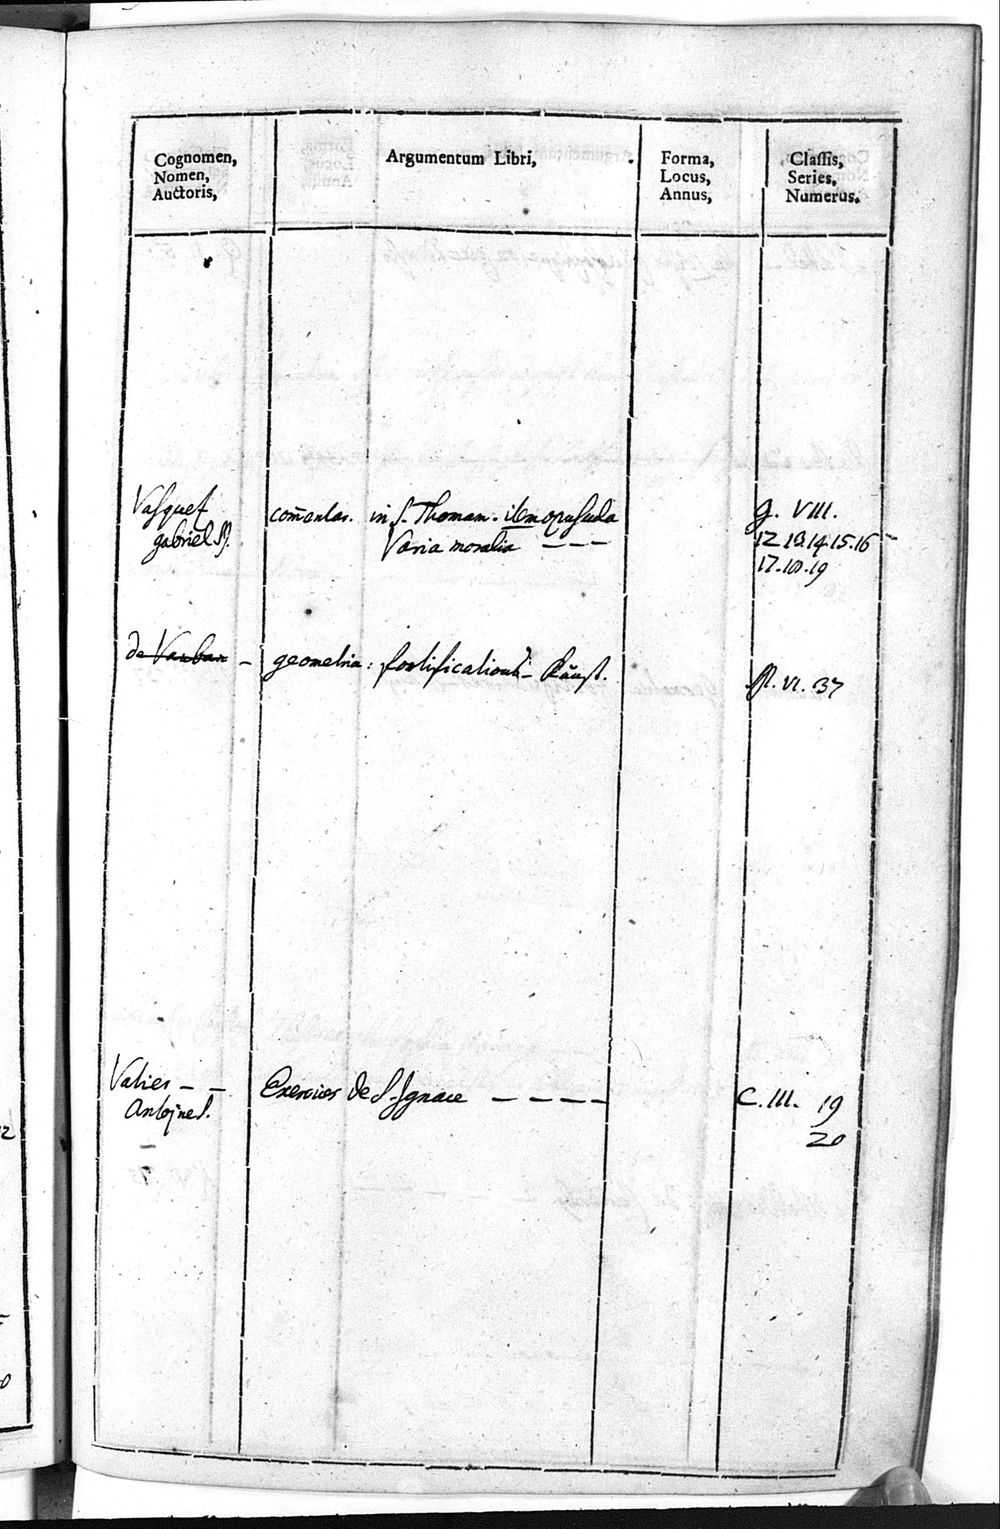 Cognomen,
Nomen,
Auctoris,
Argumentum Libri,
Forma,
Locus,
Annus,
Classis,
Series,
Numerus.
Vasquez com̄entar. in S. Thomam. item opuscula g. VIII.
gabriel SJ. Varia moralia — — — 12 13.14.15.16
17.18.19
de Vauban — geometria: fortifications — VI. 37
Valier — — Exercices de S. Ignace — — — — C. III. 19
Antoine S. 20